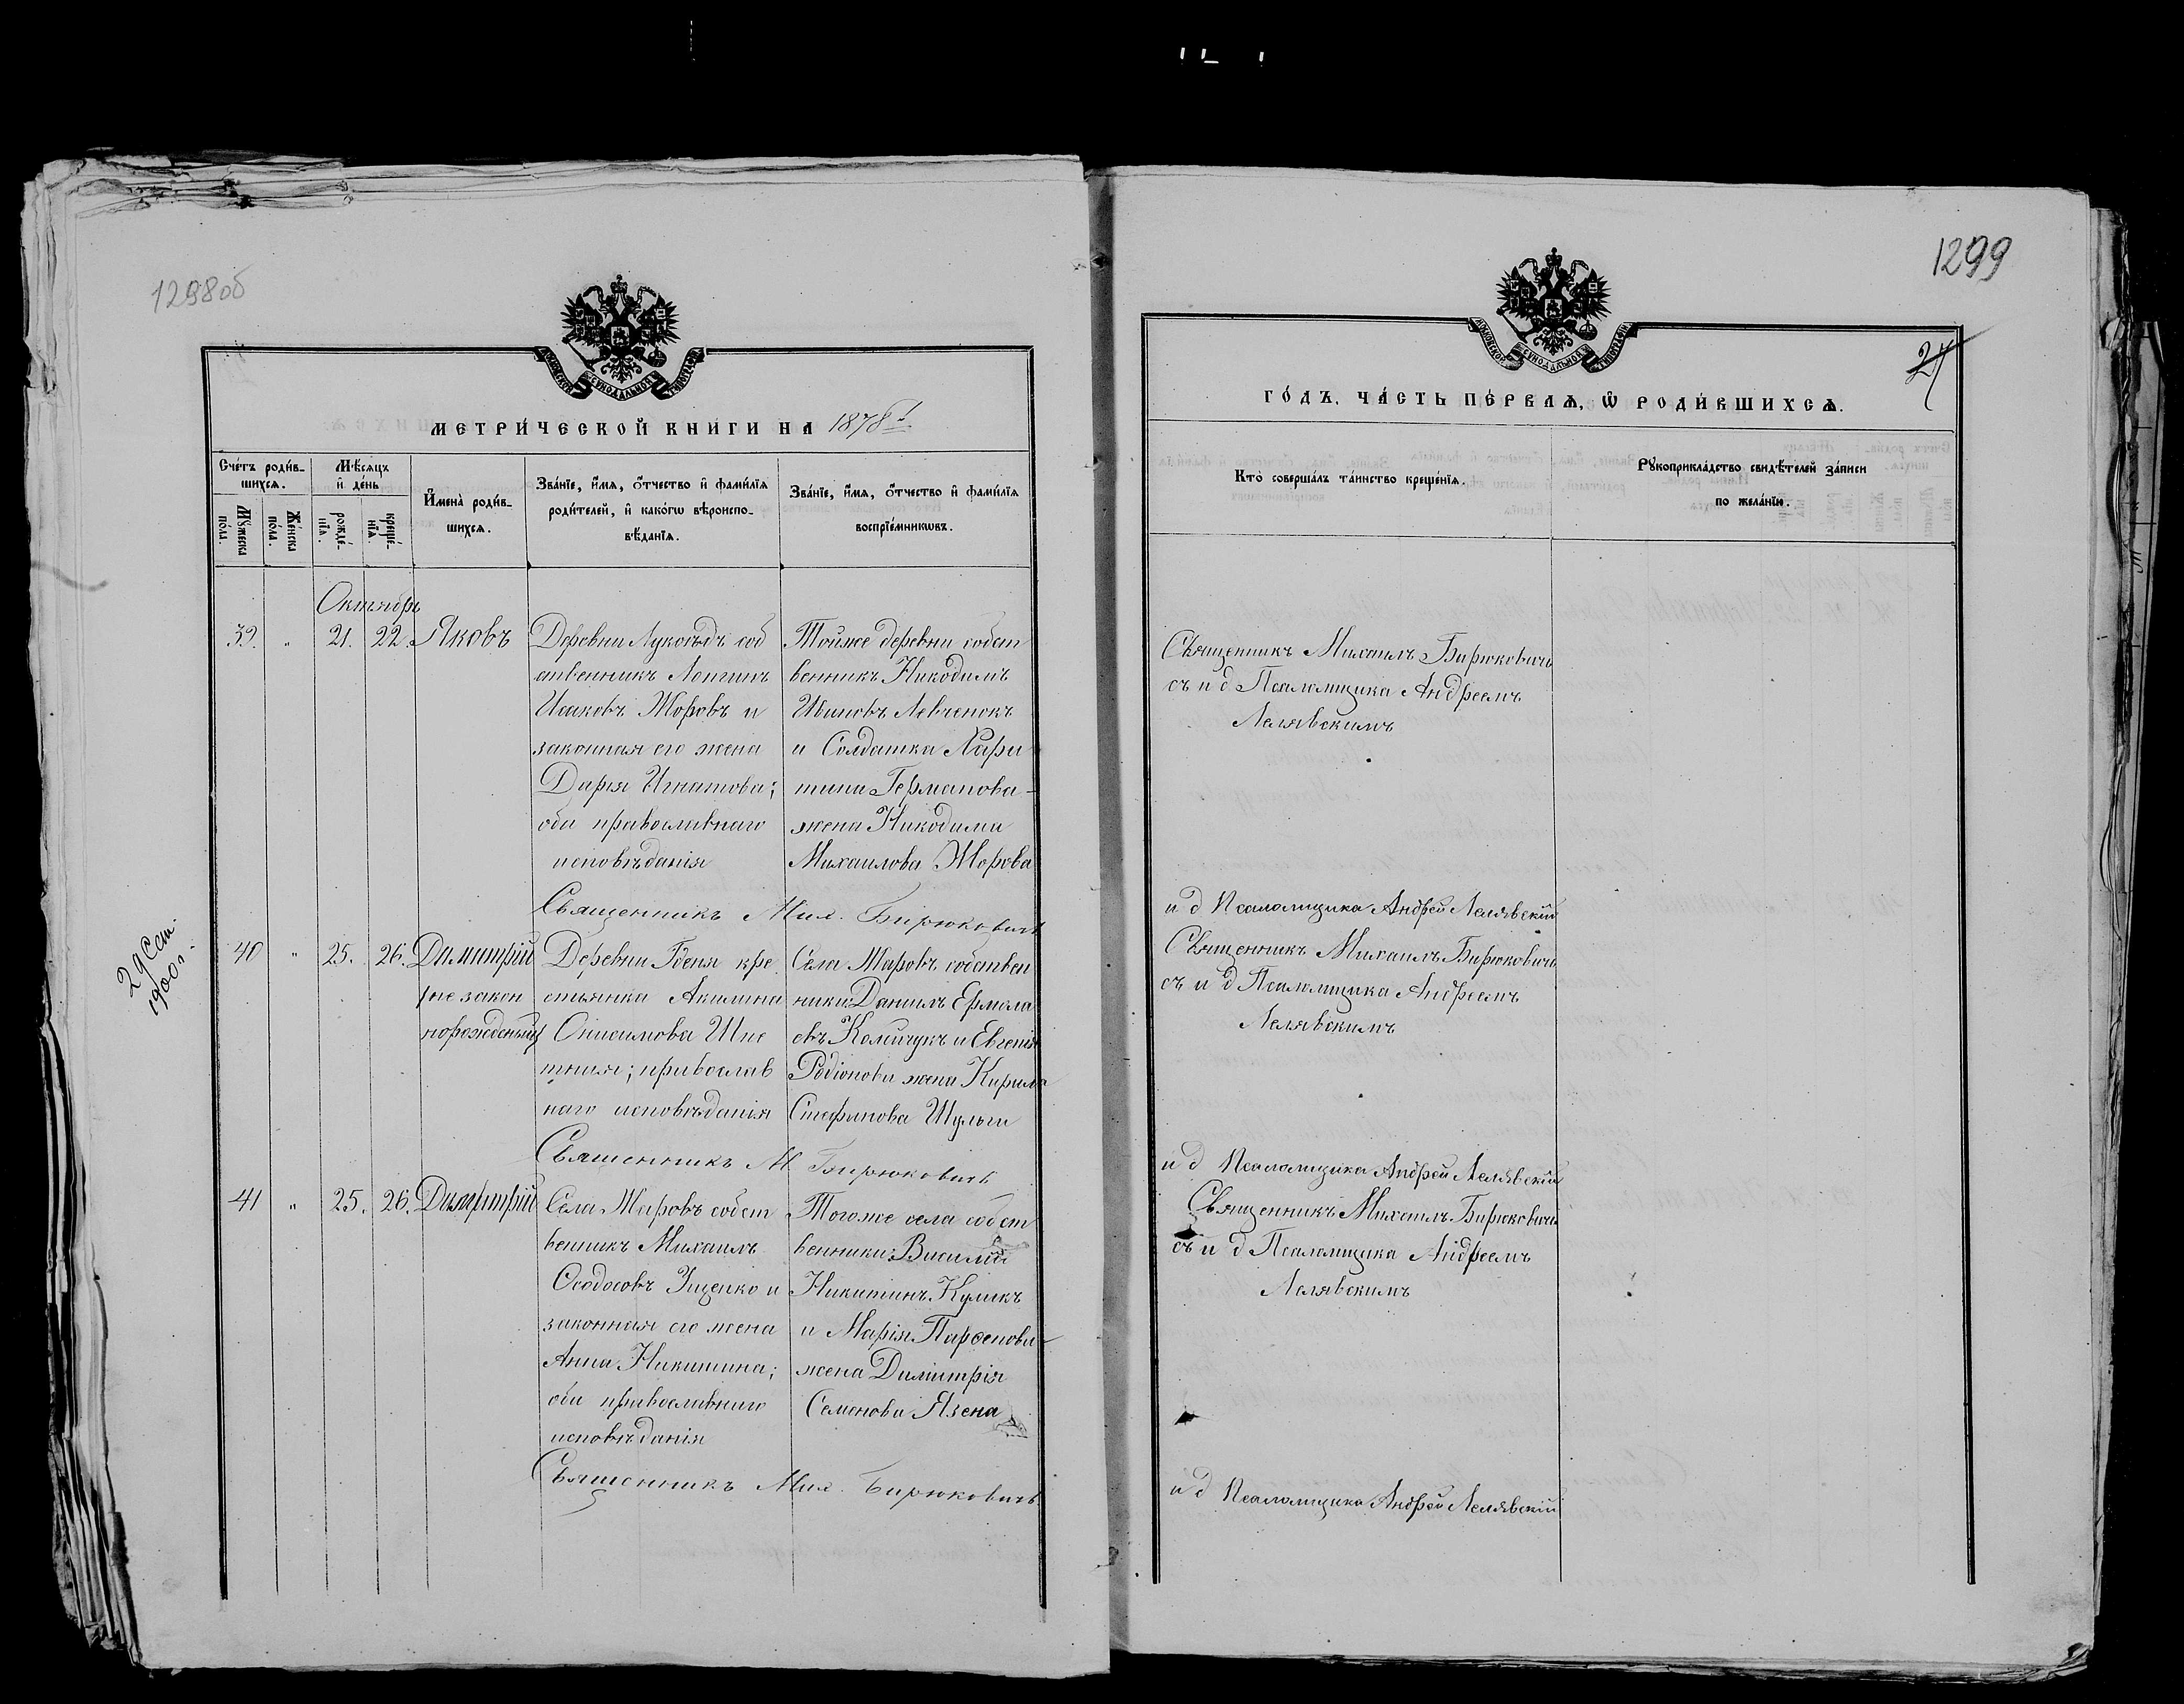 1298об
МОСКОВСКОЙ СѴНОДАЛЬНОЙ ТИПОГРАФІИ
МЕТРИ́ЧЕСКОЙ КНИ́ГИ НА 1878й
Сче́тъ роди́в-
шихсѧ.
Мѣ́сѧцъ
и҆ де́нь
Мꙋ́жеска
по́ла.
Же́нска
по́ла.
рожде́-
нїѧ.
креще́-
нїѧ.
И҆мена̀ роди́в-
шихсѧ.
Зва́нїе, и҆́мѧ, о҆́тчество и҆ фами́лїѧ
роди́телей, и҆ како́гѡ вѣроиспо-
вѣ́данїѧ.
Зва́нїе, и҆́мѧ, о҆́тчество и҆ фами́лїѧ
воспрїе́мникѡвъ.
Октябрь
39. " 21. 22. Яковъ
Деревни Лукоѣдъ соб
ственникъ Лонгинъ
Исаковъ Жоровъ и
законная его жена
Дарія Игнатова;
оба православнаго
исповѣданія
Тойже деревни собст
венникъ Никодимъ
Ивановъ Левченокъ
и Солдатка Хари
тина Германова-
жена Никодима
Михаилова Жорова
Священникъ Мих. Бирюковичъ
29 Сент
1900 г.
40 " 25. 26. Димитрій
/не закон
норожденый/
Деревни Гденя кре
стьянка Акилина
Онисимова Шпе
тная; православ
наго исповѣданія
Села Жаровъ собствен
ники: Данiилъ Ермола
евъ Комичукъ и Евгенія
Родіонова жена Кирила
Стефанова Шульги
Священникъ М Бирюковичъ
41 " 25. 26. Димитрій
Села Жаровъ собст
венникъ Михаилъ
Ѳеодосовъ Ищенко и
законная его жена
Анна Никитина;
оба православнаго
исповѣданія
Тогоже села собст
венники: Василій
Никитинъ Куликъ
и Марія Парѳенова-
жена Димитрія
Семенова Язена
Священникъ Мих. Бирюковичъ
1299
27
МОСКОВСКОЙ СѴНОДАЛЬНОЙ ТИПОГРАФІИ
ГО́ДЪ, ЧА́СТЬ ПЕ́РВАѦ, Ѡ҆ РОДИ́ВШИХСѦ.
Кто̀ соверша́лъ та́инство креще́нїѧ.
Рꙋкоприкла́дство свидѣ́телей за́писи
по жела́нїю.
Священникъ Михаилъ Бирюковичъ
съ и д Псаломщика Андреемъ
Лелявскимъ
и д Псаломщика Андрей Лелявскій
Священникъ Михаилъ Бирюковичъ
съ и д Псаломщика Андреемъ
Лелявскимъ
и д Псаломщика Андрей Лелявскій
Священникъ Михаилъ Бирюковичъ
съ и д Псаломщика Андреемъ
Лелявскимъ
и д Псаломщика Андрей Лелявскій